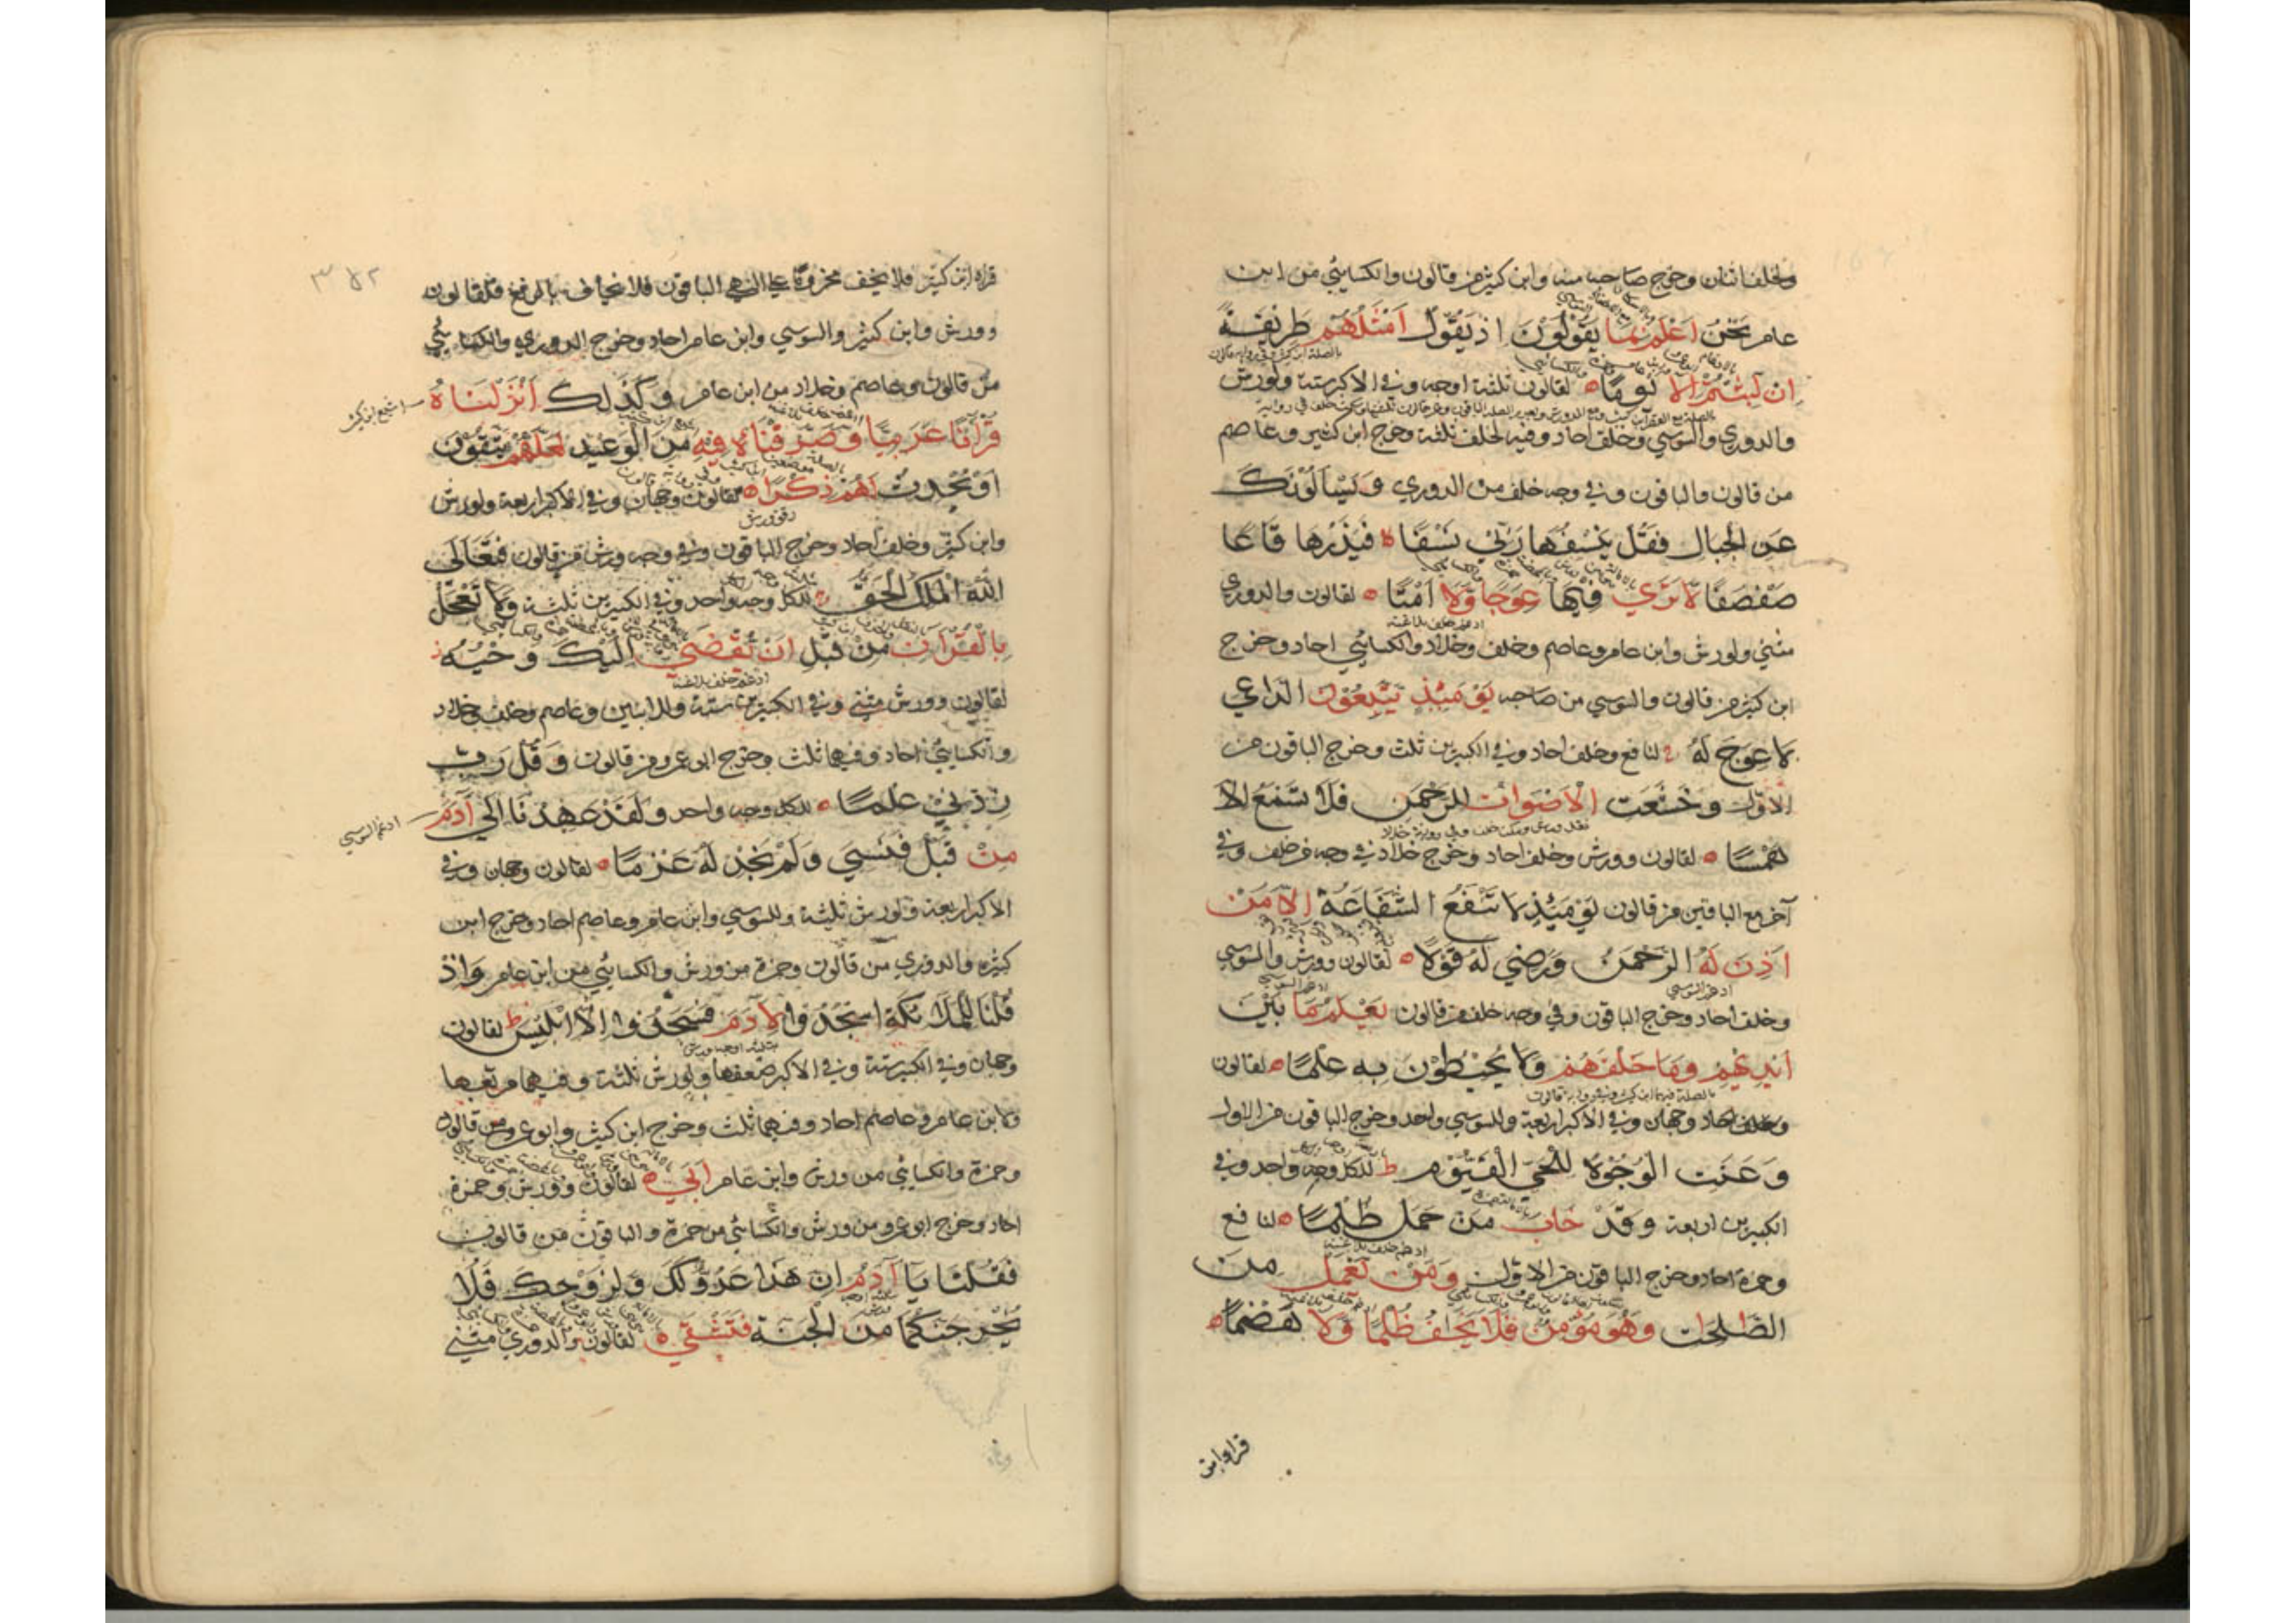 ولخلف اثنان وخرج صاحبه منه وابن كثير من قالون والكسائي من ابن
عامر نَحْنُ اَعْلَمُ بِمَا يَقُولُونَ اِذْ يَقُولُ اَمْثَلُهُمْ طَرِيقَةً
اِنْ لَبِثْتُمْ اِلَّا يَوْمًا لقالون ثلثة اوجه وفي الاكبر ستة ولورش
والدوري والسوسي وخلف احاد وفيه لخلف ثلثة وخرج ابن كثير وعاصم
من قالون والباقون وفي وجه خلف من الدوري وَيَسْأَلُونَكَ
عَنِ الْجِبَالِ فَقُلْ يَنْسِفُهَا رَبِّي نَسْفًا فَيَذَرُهَا قَاعًا
صَفْصَفًا لَا تَرَى فِيهَا عِوَجًا وَلَا اَمْتًا لقالون والدوري
مثني ولورش وابن عامر وعاصم وخلف وخلاد والكسائي احاد وخرج
ابن كثير من قالون والسوسي من صاحبه يَوْمَئِذٍ يَتَّبِعُونَ الدَّاعِيَ
لَا عِوَجَ لَهُ لنافع وخلف احاد وفي الكبيرين ثلث وخرج الباقون من
الاول وَخَشَعَتِ الْاَصْوَاتُ لِلرَّحْمَنِ فَلَا تَسْمَعُ اِلَّا
هَمْسًا لقالون وورش وخلف احاد وخرج خلاد في وجه من خلف وفي
آخر مع الباقين من قالون يَوْمَئِذٍ لَا تَنْفَعُ الشَّفَاعَةُ اِلَّا مَنْ
اَذِنَ لَهُ الرَّحْمَنُ وَرَضِيَ لَهُ قَوْلًا لقالون وورش والسوسي
وخلف احاد وخرج الباقون وفي وجه خلف من قالون يَعْلَمُ مَا بَيْنَ
اَيْدِيهِمْ وَمَا خَلْفَهُمْ وَلَا يُحِيطُونَ بِهِ عِلْمًا لقالون
وجهان وفي الاكبر اربعة وللسوسي واحد وخرج الباقون من الاول
وَعَنَتِ الْوُجُوهُ لِلْحَيِّ الْقَيُّومِ ط للكل وجه واحد وفي
الكبيرين اربعة وَقَدْ خَابَ مَنْ حَمَلَ ظُلْمًا لنافع
وحمزة احاد وخرج الباقون من الاول وَمَنْ يَعْمَلْ مِنَ
الصَّلِحَتِ وَهُوَ مُؤْمِنٌ فَلَا يَخَفْ ظُلْمًا وَلَا هَضْمًا
قراه ابن
قراه ابن كثير فلا يخف مجزوما علي النهي الباقون فلا يخاف بالرفع فلقالون
وورش وابن كثير والسوسي وابن عامر احاد وخرج الدوري والكسائي
من قالون وعاصم وخلاد من ابن عامر وَكَذَلِكَ اَنْزَلْنَاهُ
قُرْآنًا عَرَبِيًّا وَصَرَّفْنَا فِيهِ مِنَ الْوَعِيدِ لَعَلَّهُمْ يَتَّقُونَ
اَوْ يُحْدِثُ لَهُمْ ذِكْرًا لقالون وجهان وفي الاكبر اربعة ولورش
وابن كثير وخلف احاد وخرج الباقون وفي وجه ورش من قالون فَتَعَالَى
اللهُ الْمَلِكُ الْحَقُّ للكل وجه واحد وفي الكبيرين ثلثة وَلَا تَعْجَلْ
بِالْقُرْآنِ مِنْ قَبْلِ اَنْ يُقْضَى اِلَيْكَ وَحْيُهُ
لقالون وورش مثني وفي الكبيرين ستة وللابنين وعاصم وخلف وخلاد
والكسائي احاد وفيهما ثلث وخرج ابو عمرو من قالون وَقُلْ رَبِّ
زِدْنِي عِلْمًا للكل وجه واحد وَلَقَدْ عَهِدْنَا اِلَى آدَمَ
مِنْ قَبْلُ فَنَسِيَ وَلَمْ نَجِدْ لَهُ عَزْمًا لقالون وجهان وفي
الاكبر اربعة ولورش ثلثة وللسوسي وابن عامر وعاصم احاد وخرج ابن
كثير والدوري من قالون وحمزة من ورش والكسائي من ابن عامر وَاِذْ
قُلْنَا لِلْمَلَائِكَةِ اسْجُدُوا لِآدَمَ فَسَجَدُوا اِلَّا اِبْلِيسَ ط لقالون
وجهان وفي الكبير ستة وفي الاكبر ضعفها ولورش ثلثة وفيهما مربعها
ولابن عامر وعاصم احاد وفيهما ثلث وخرج ابن كثير وابو عمرو من قالون
وحمزة والكسائي من ورش وابن عامر اَبَى لقالون وورش وحمزة
احاد وخرج ابو عمرو من ورش والكسائي من حمزة والباقون من قالون
فَقُلْنَا يَا آدَمُ اِنَّ هَذَا عَدُوٌّ لَكَ وَلِزَوْجِكَ فَلَا
يُخْرِجَنَّكُمَا مِنَ الْجَنَّةِ فَتَشْقَى لقالون والدوري مثني
اشبع ابن كثير
ادغم السوسي